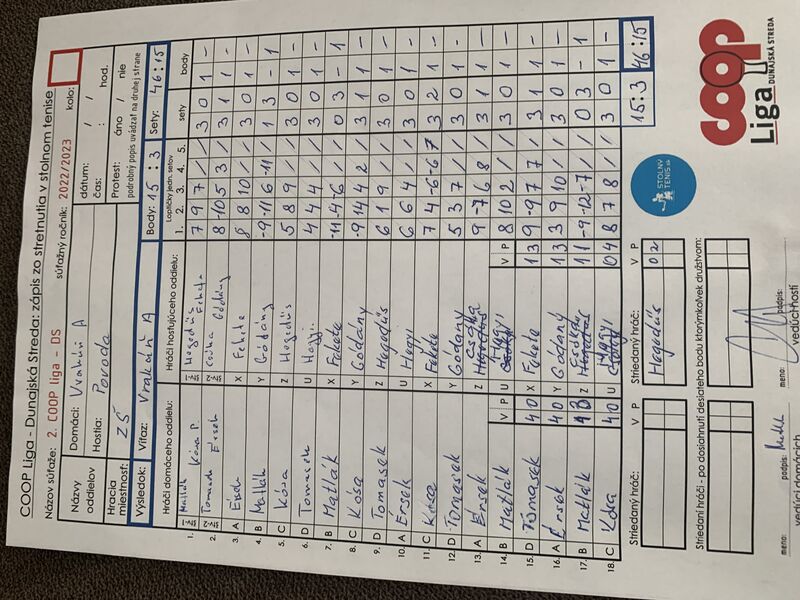 COOP Liga - Dunajská Streda: zápis zo stretnutia v stolnom tenise
Názov súťaže: 2. COOP liga - DS súťažný ročník: 2022/2023 kolo:
Názvy oddielov Domáci: Vrakúň A dátum: / /
Hostia: Povoda čas: : hod.
Hracia miestnosť: ZŠ Protest: áno / nie
podrobný popis uvádzať na druhej strane
Výsledok: Víťaz: Vrakúň A Body: 15 : 3 Sety: 46:15
Hráči domáceho oddielu: Hráči hosťujúceho oddielu: Loptičky jedn. setov sety body
1. 2. 3. 4. 5.
1. Matlák Kósa P. Hegedüs Fekete 7 9 7 / / 3 0 1 -
2. Tomasek Érsek Csóka Godány 8 -10 5 3 / 3 1 1 -
3. A Érsek X Fekete 8 8 10 / / 3 0 1 -
4. B Matlák Y Godány -9 -11 6 -11 / 1 3 - 1
5. C Kósa Z Hegedüs 5 8 9 / / 3 0 1 -
6. D Tomasek U Hegyi 4 4 4 / / 3 0 1 -
7. B Matlák X Fekete -11 -4 -6 / / 0 3 - 1
8. C Kósa Y Godány -9 14 4 2 / 3 1 1 -
9. D Tomasek Z Hegedüs 6 1 9 / / 3 0 1 -
10. A Érsek U Hegyi 6 6 4 / / 3 0 1 -
11. C Kósa X Fekete 7 4 -6 -6 7 3 2 1 -
12. D Tomasek Y Godány 5 3 7 / / 3 0 1 -
13. A Érsek Z Csóka 9 -7 6 8 / 3 1 1 -
14. B Matlák V P V P U Hegyi 8 10 2 / / 3 0 1 -
15. D Tomasek 4 0 X Fekete 1 3 9 -9 7 7 / 3 1 1 -
16. A Érsek 4 0 Y Godány 1 3 3 9 10 / / 3 0 1 -
17. B Matlák Z Csóka 1 1 -9 -12 -7 / / 0 3 - 1
18. C Kósa 4 0 U Hegyi 0 4 8 7 8 / / 3 0 1 -
15:3 46:15
Striedaný hráč: V P Striedaný hráč: V P
Hegedüs 0 2
Striedaní hráči - po dosiahnutí desiateho bodu ktorýmkoľvek družstvom:
meno: podpis: meno: podpis:
vedúci domácich vedúci hostí
STOLNÝ TENIS.SK
coop
Liga
DUNAJSKÁ STREDA